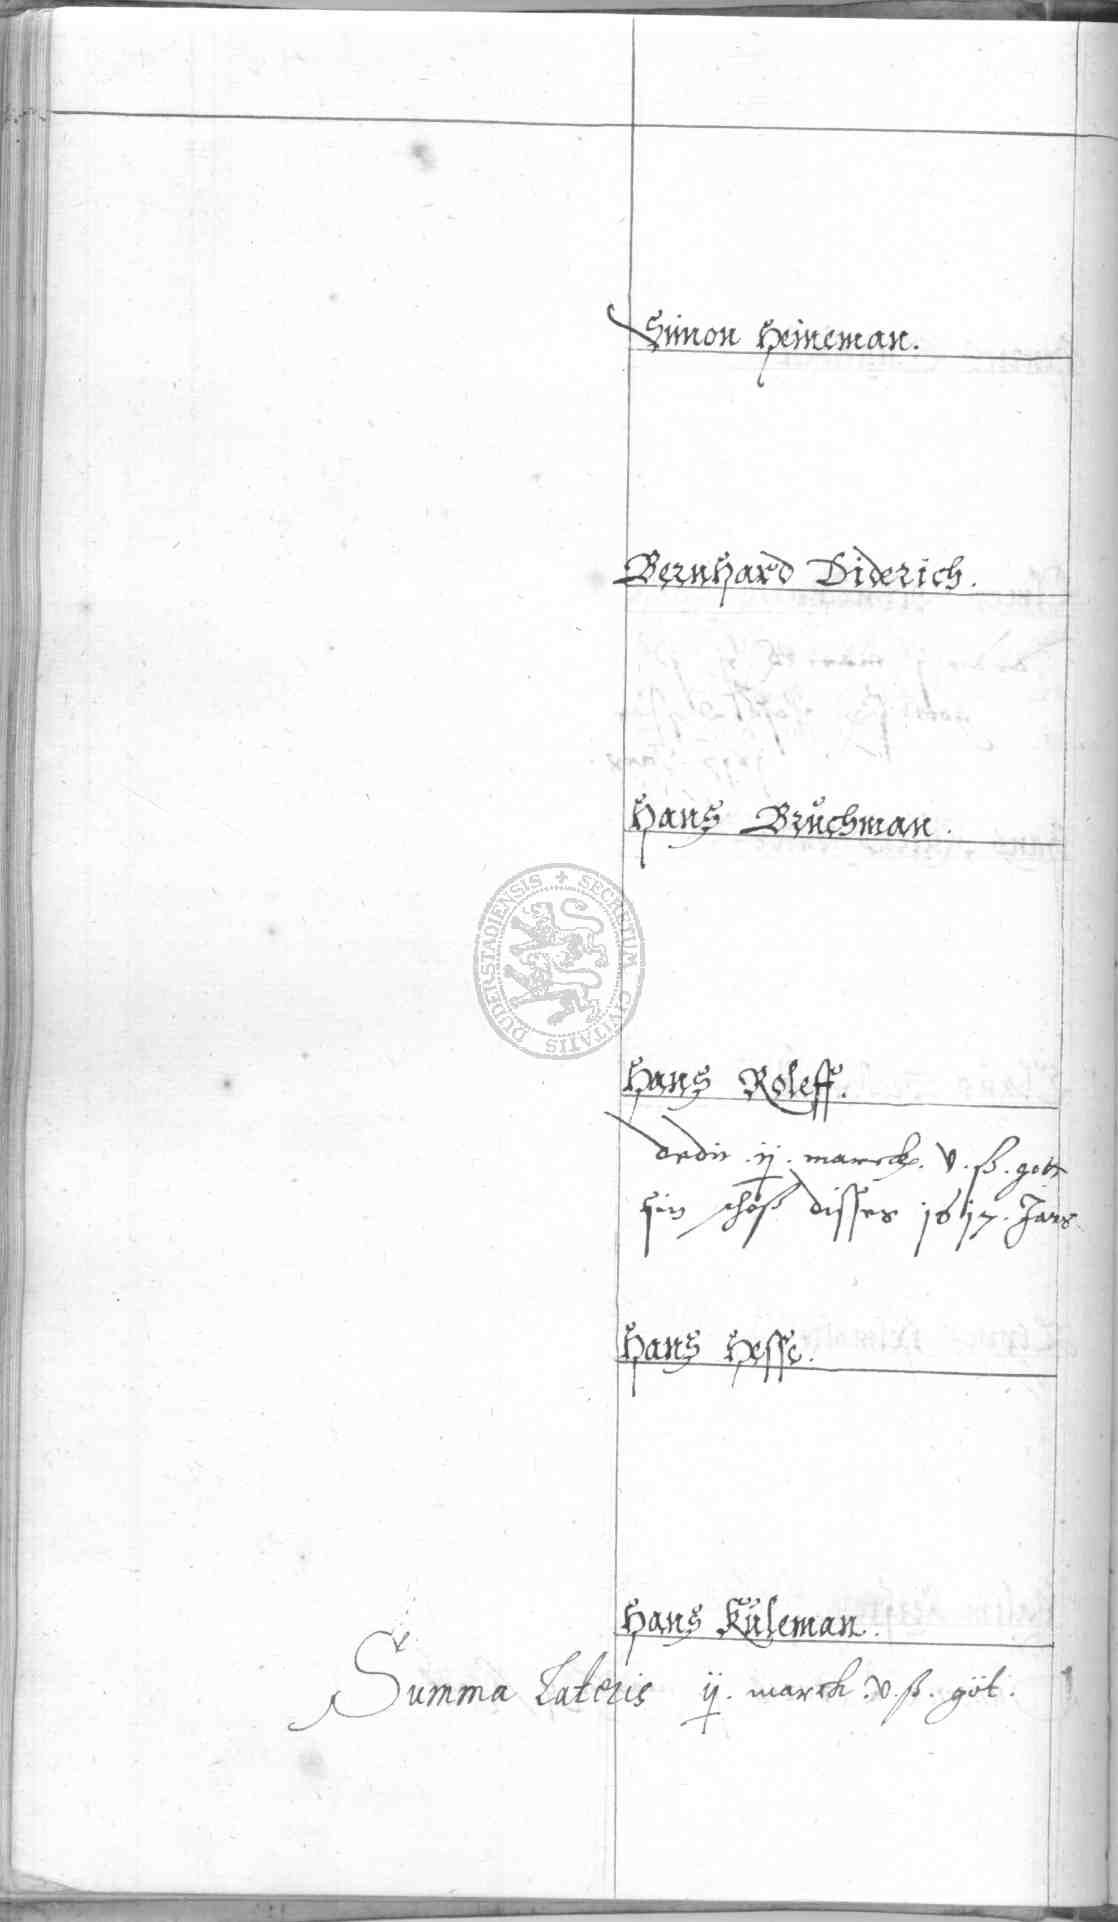 Simon Heineman.
Bernhard Diderich.
Hans Brůchman.
DUDERSTADIENSIS + SECRETUM CIVITATIS
Hans Roleff.
dedit ij. marck. v. ß. gott
sin schoß disses 1617. Jars
Hans Hesse.
Hans Küleman.
Summa Lateris ij. marck. v. ß. göt.